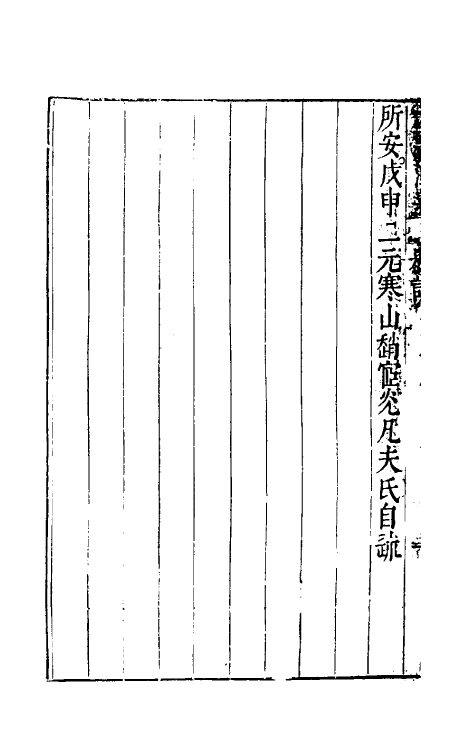 所安。戊申上元寒山趙宧光凡夫氏自疏